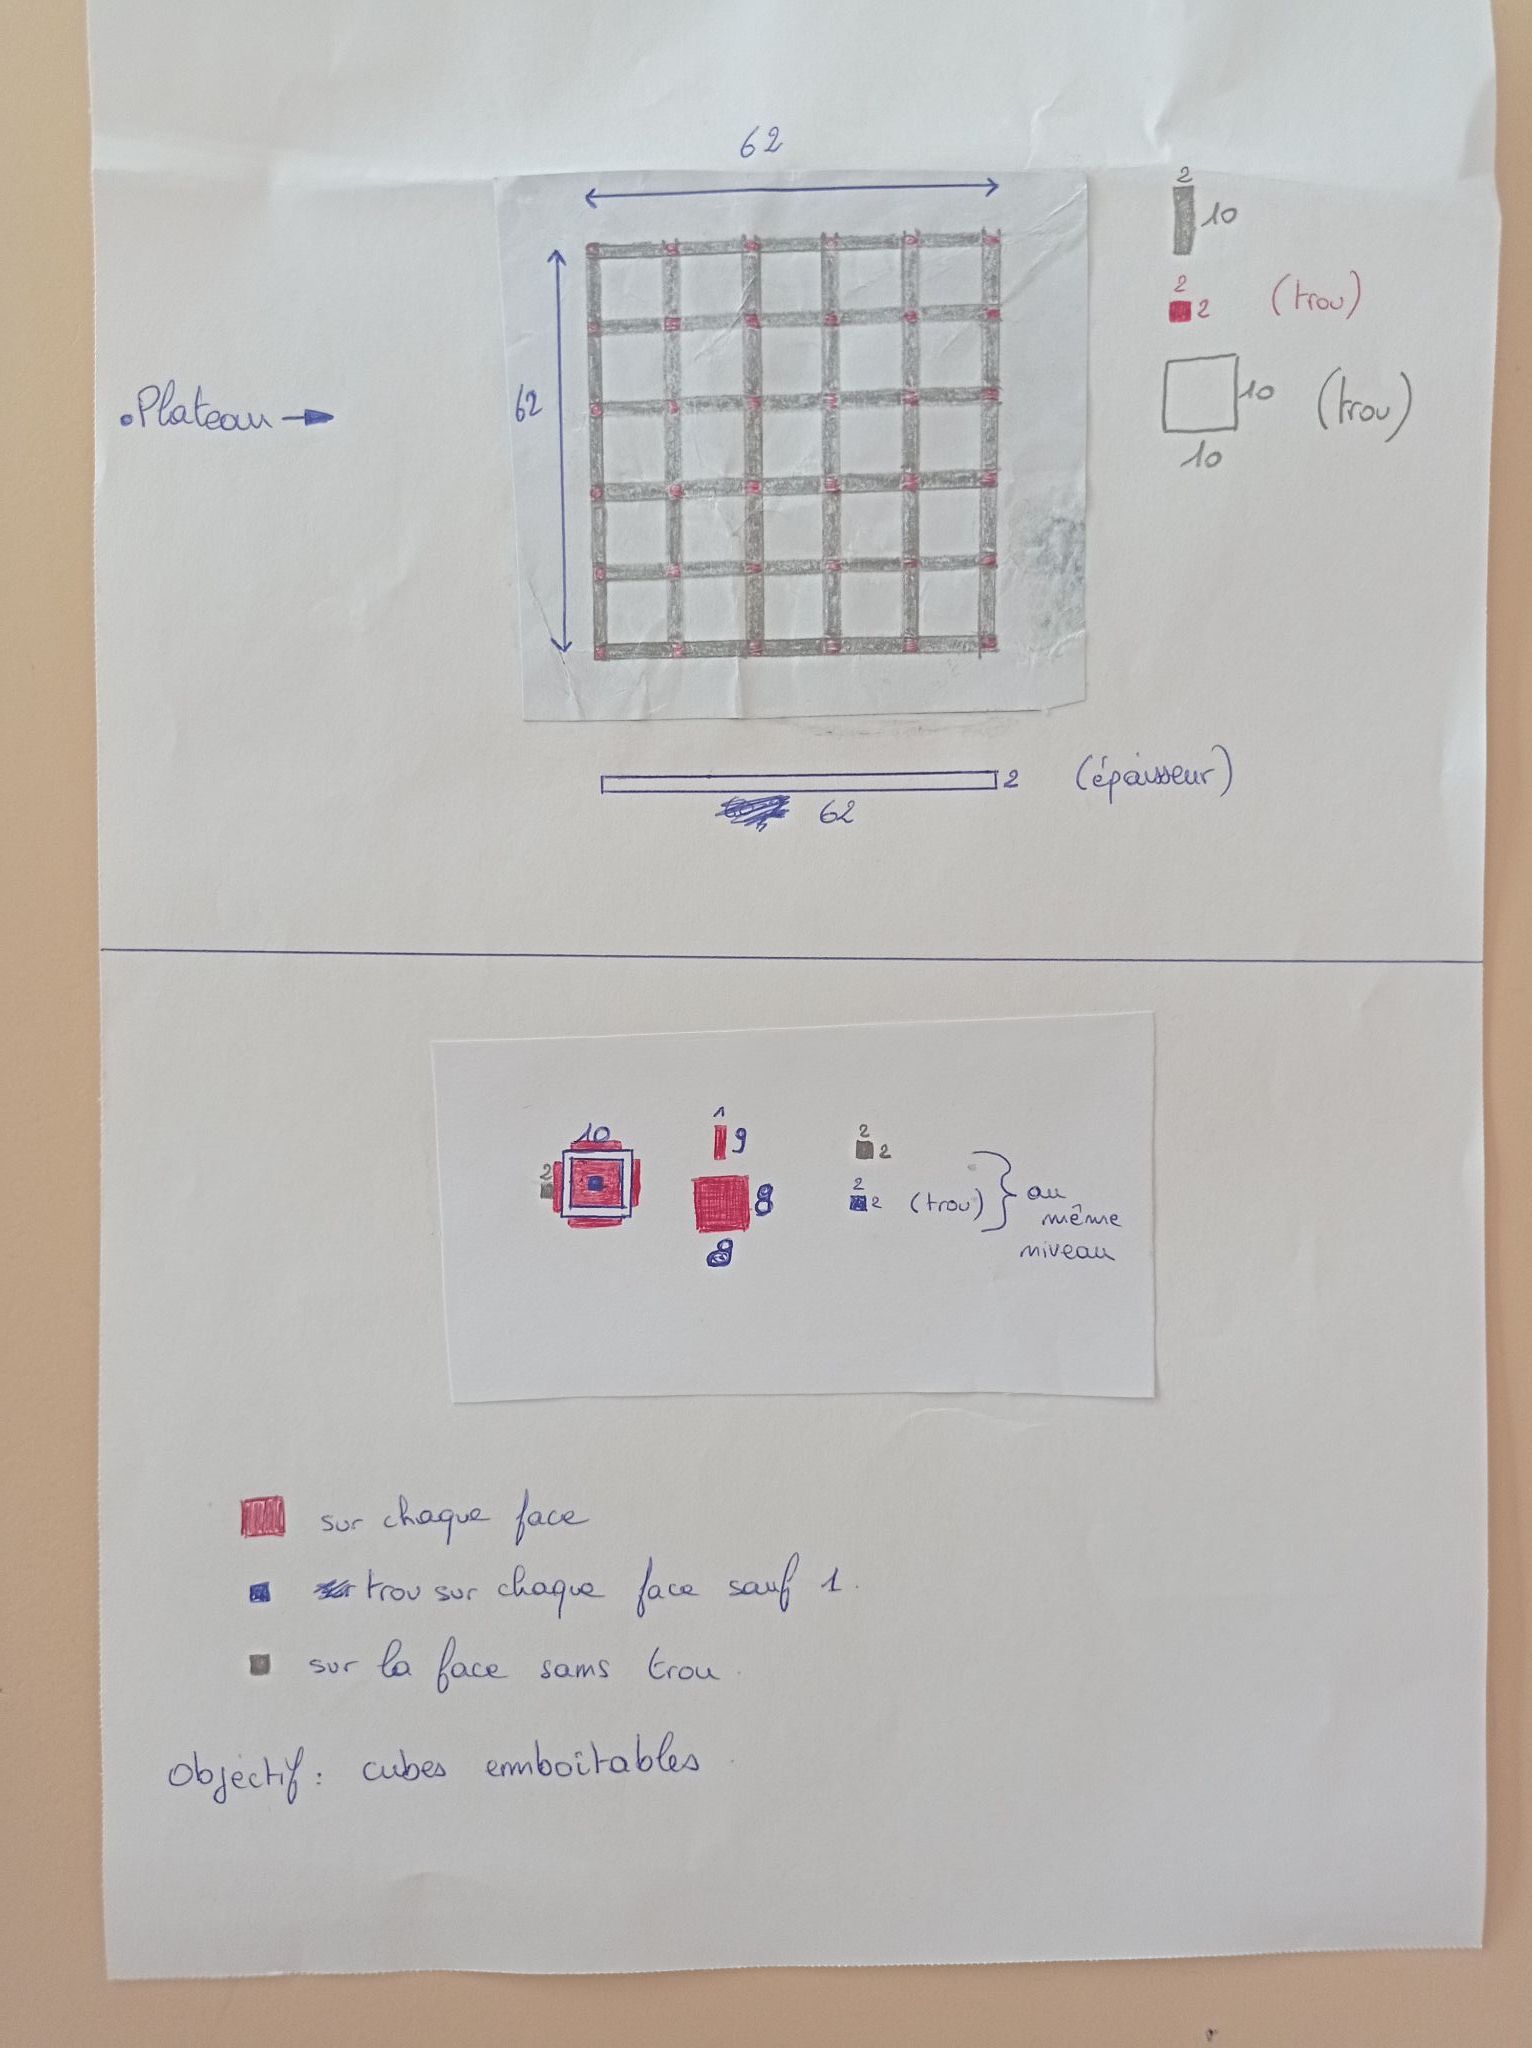 62
2
10
2
2 (trou)
10 (trou)
10
62
•Plateau →
2 (épaisseur)
62
10
2
1
9
8
8
2
2
2
2 (trou)
au
même
niveau
sur chaque face
trou sur chaque face sauf 1.
sur la face sans trou.
Objectif : cubes emboîtables.